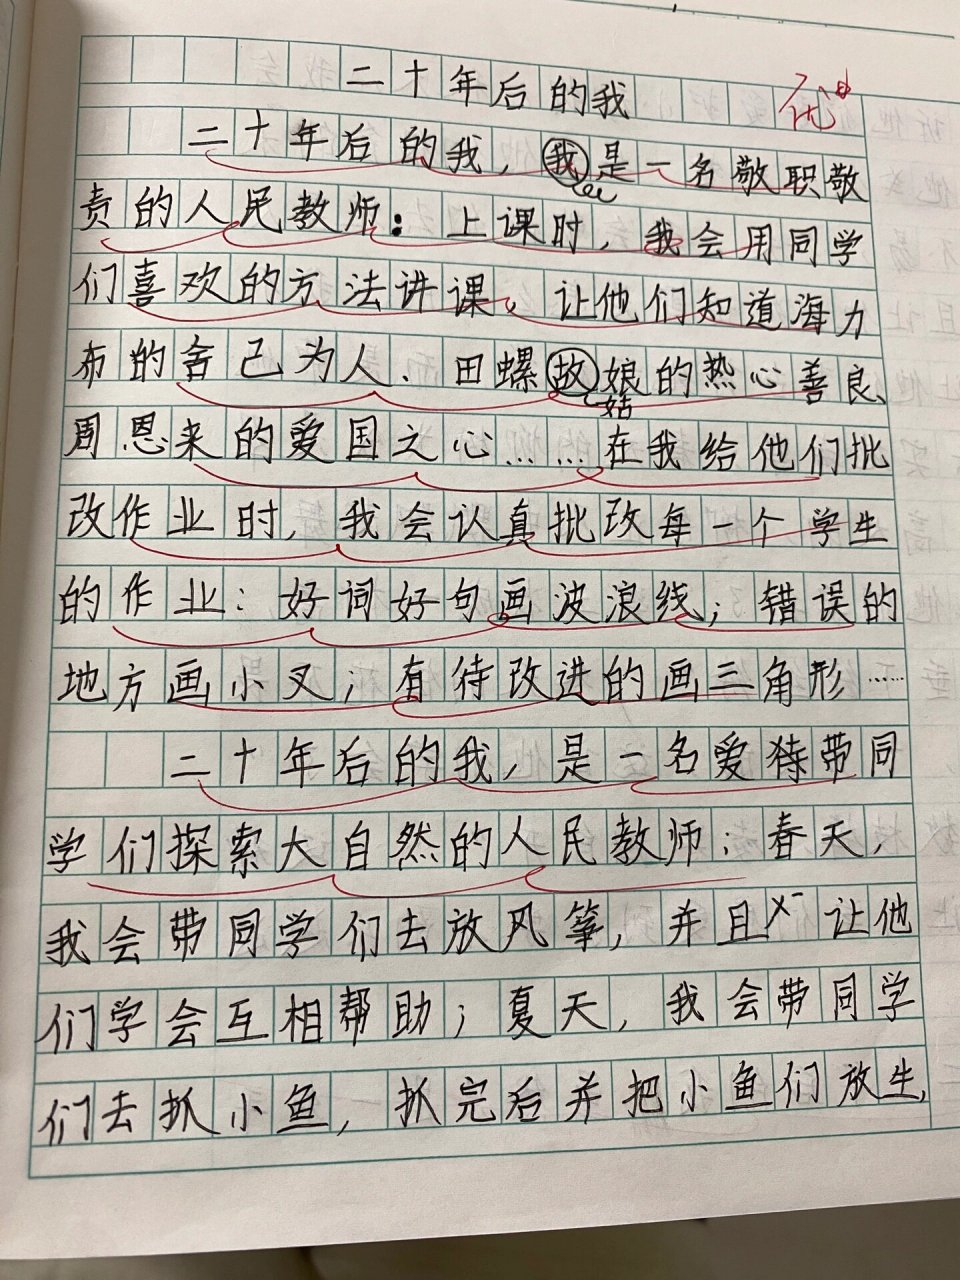 二十年后的我
优
二十年后的我，我是一名敬职敬
责的人民教师：上课时，我会用同学
们喜欢的方法讲课，让他们知道海力
布的舍己为人、田螺故娘的热心善良、
姑
周恩来的爱国之心……在我给他们批
改作业时，我会认真批改每一个学生
的作业：好词好句画波浪线；错误的
地方画小叉；有待改进的画三角形……
二十年后的我，是一名爱待带同
学们探索大自然的人民教师：春天，
我会带同学们去放风筝，并且让他
们学会互相帮助；夏天，我会带同学
们去抓小鱼，抓完后并把小鱼们放生，